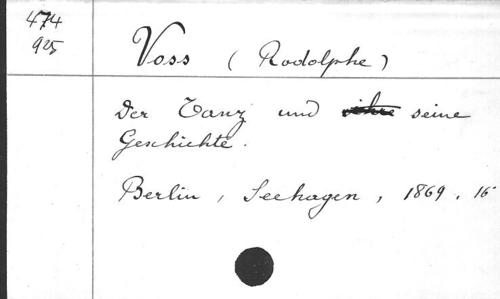 474
925
Voss (Rodolphe)
Der Tanz und ihre seine
Geschichte.
Berlin, Seehagen, 1869. 16